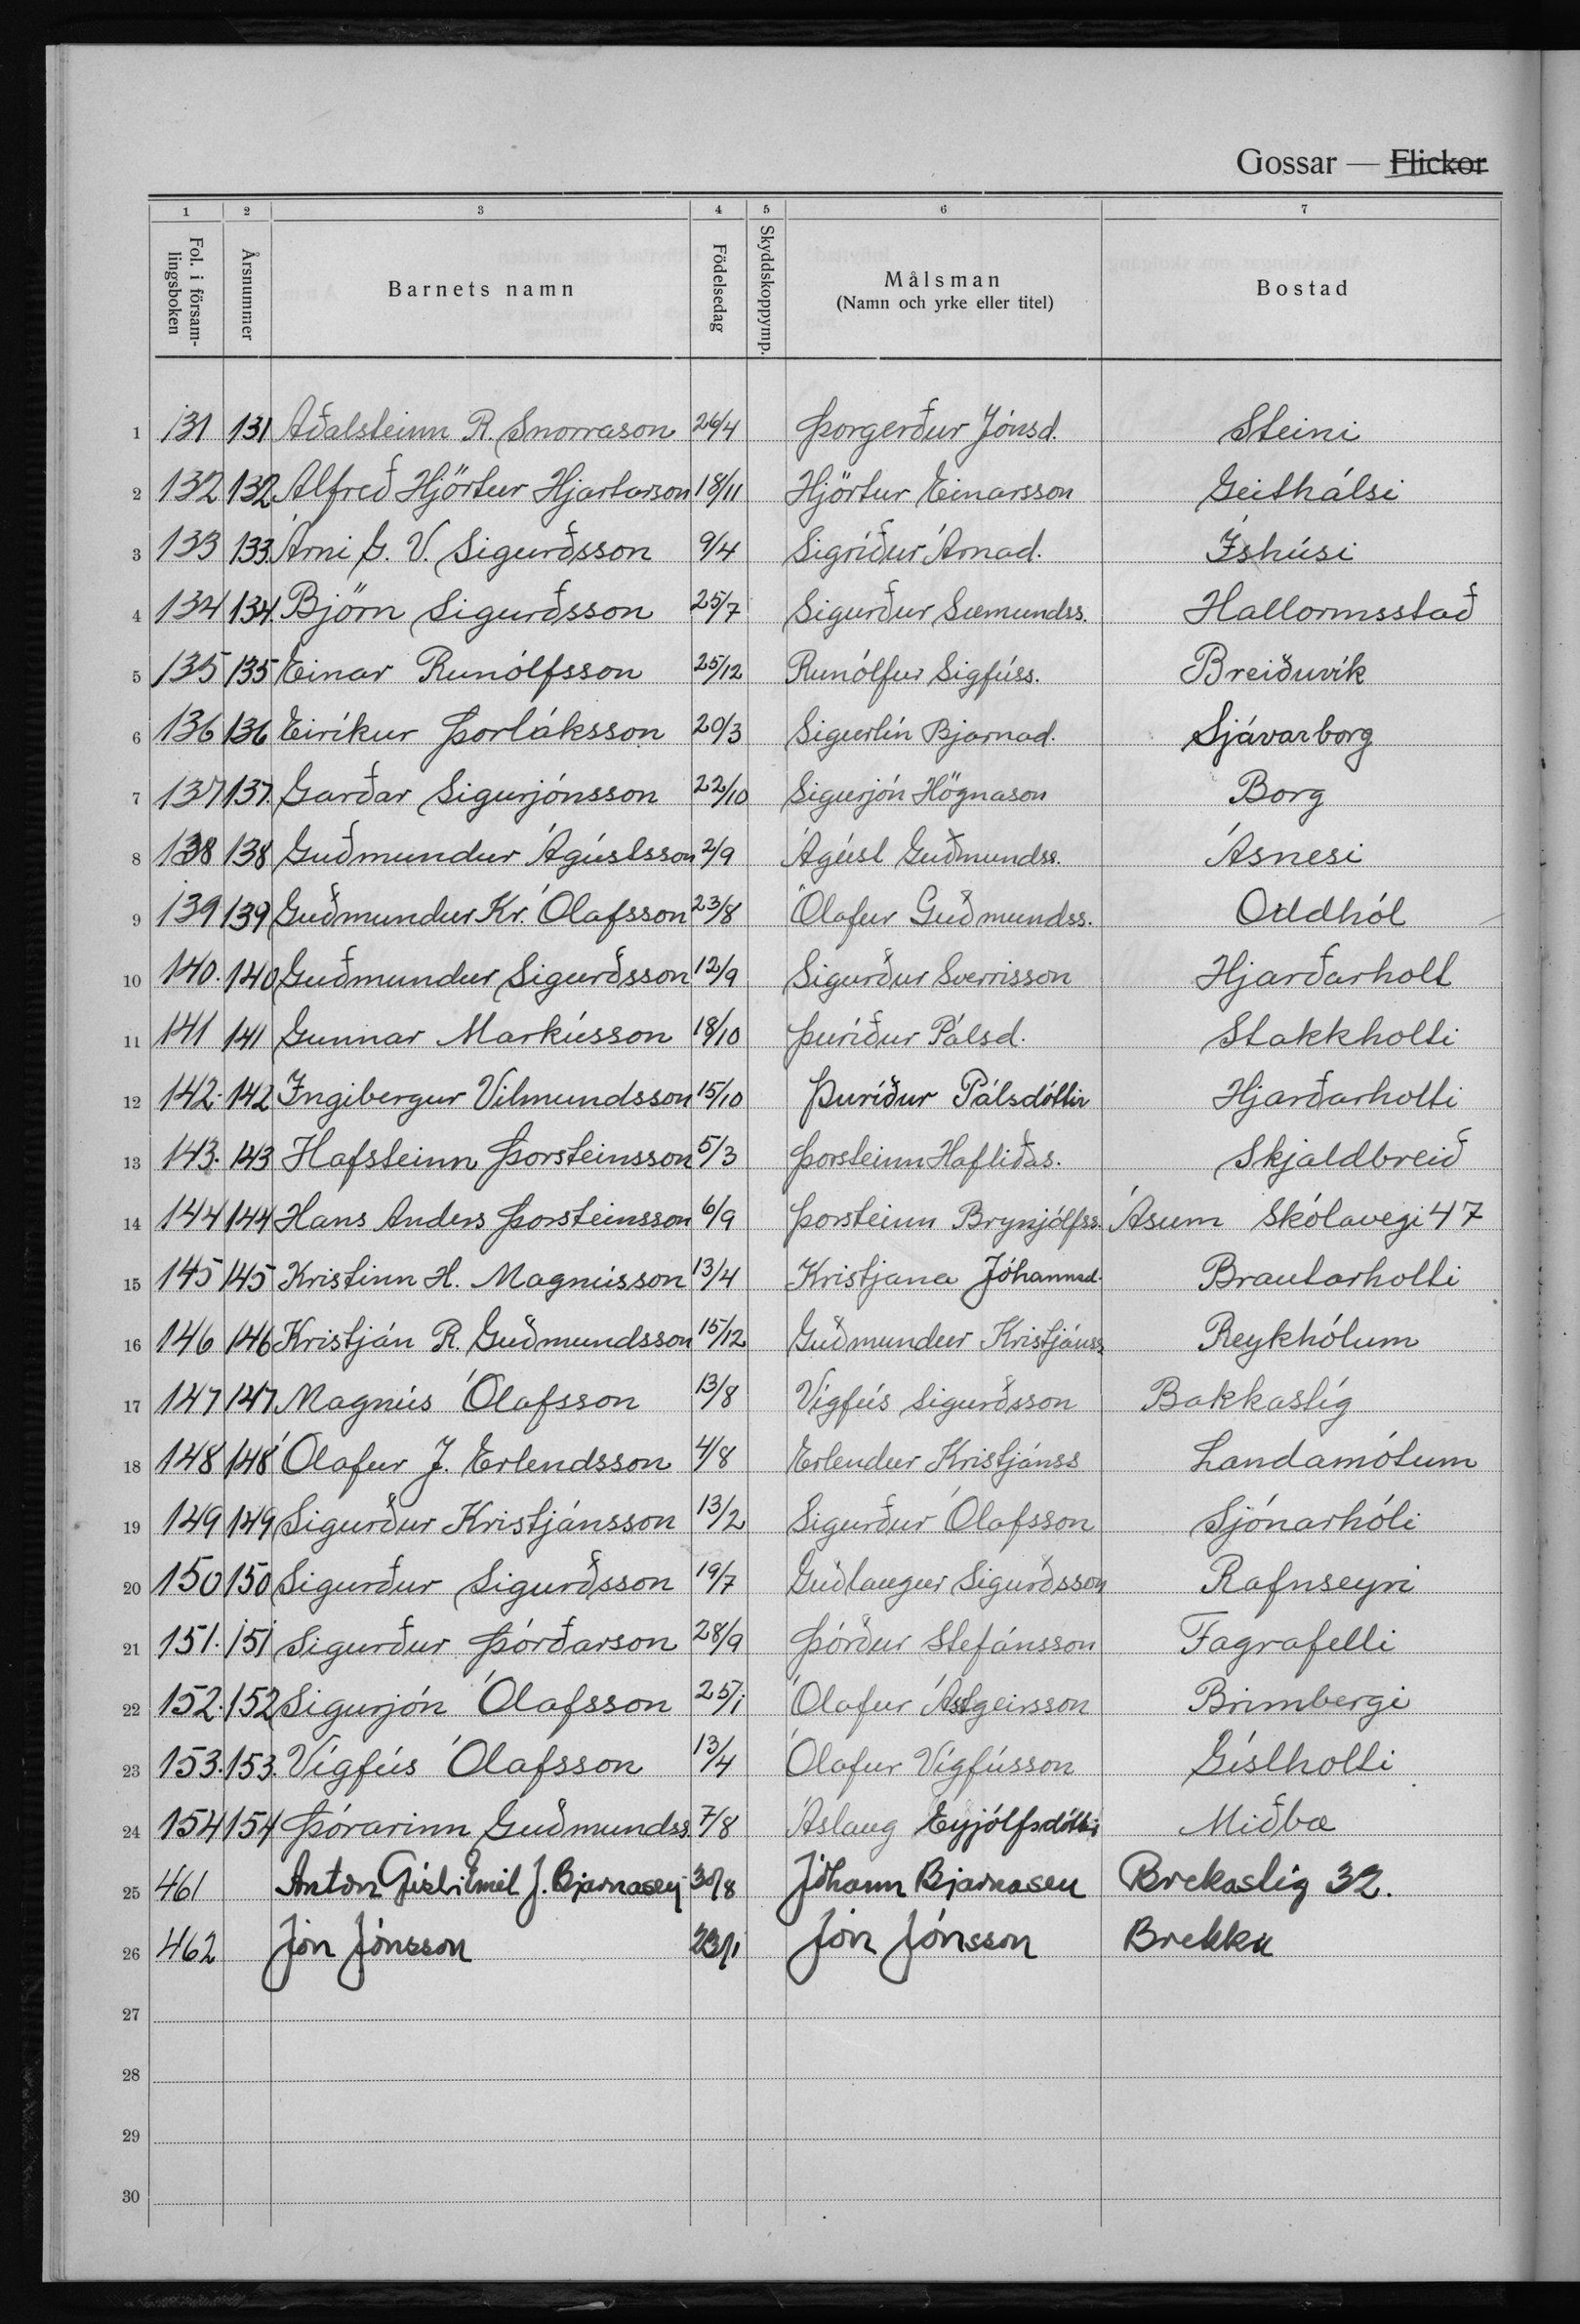 Gossar — Flickor
1 2 3 4 5 6 7
Fol. i försam-lingsboken Årsnummer Barnets namn Födelsedag Skyddskoppymp. Målsman (Namn och yrke eller titel) Bostad
1 131 131 Aðalsteinn R. Snorrason 26/4 Þorgerður Jónsd. Steini
2 132 132 Alfreð Hjörtur Hjartarson 18/11 Hjörtur Einarsson Geithálsi
3 133 133. Árni G. V. Sigurðsson 9/4 Sigríður Árnad. Íshúsi
4 134 134. Björn Sigurðsson 25/7 Sigurður Sæmundss. Hallormsstað
5 135 135 Einar Runólfsson 25/12 Runólfur Sigfúss. Breiðuvík
6 136 136 Eiríkur Þorláksson 20/3 Sigurlín Bjarnad. Sjávarborg
7 137 137. Garðar Sigurjónsson 22/10 Sigurjón Högnason Borg
8 138 138 Guðmundur Ágústsson 2/9 Ágúst Guðmundss. Ásnesi
9 139 139 Guðmundur Kr. Ólafsson 23/8 Ólafur Guðmundss. Oddhól
10 140. 140 Guðmundur Sigurðsson 12/9 Sigurður Sverrisson Hjarðarholt
11 141 141 Gunnar Markússon 18/10 Þuríður Pálsd. Stakkholti
12 142. 142 Ingibergur Vilmundsson 15/10 Þuríður Pálsdóttir Hjarðarholti
13 143. 143 Hafsteinn Þorsteinsson 5/3 Þorsteinn Hafliðas. Skjaldbreið
14 144 144 Hans Anders Þorsteinsson 6/9 Þorsteinn Brynjólfss. Ásum Skólavegi 47
15 145 145 Kristinn H. Magnússon 13/4 Kristjana Jóhannsd. Brautarholti
16 146 146 Kristján R. Guðmundsson 15/12 Guðmundur Kristjánss Reykhólum
17 147 147. Magnús Ólafsson 13/8 Vigfús Sigurðsson Bakkastíg
18 148 148 Ólafur J. Erlendsson 4/8 Erlendur Kristjánss Landamótum
19 149 149 Sigurður Kristjánsson 13/2 Sigurður Ólafsson Sjónarhóli
20 150 150 Sigurður Sigurðsson 19/7 Guðlaugur Sigurðsson Rafnseyri
21 151. 151 Sigurður Þórðarson 28/9 Þórður Stefánsson Fagrafelli
22 152. 152 Sigurjón Ólafsson 25/1 Ólafur Ástgeirsson Brimbergi
23 153. 153. Vigfús Ólafsson 13/4 Ólafur Vigfússon Gíslholti
24 154 154 Þórarinn Guðmundss. 7/8 Áslaug Eyjólfsdóttir Miðbæ
25 461 Anton Gísli Emil J. Bjarnasen 30/8 Jóhann Bjarnasen Brekastíg 32.
26 462 Jón Jónsson 23/1 Jón Jónsson Brekku
27
28
29
30